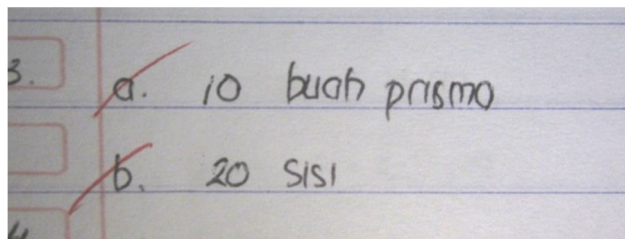 3. a. 10 buah prisma
b. 20 sisi
4